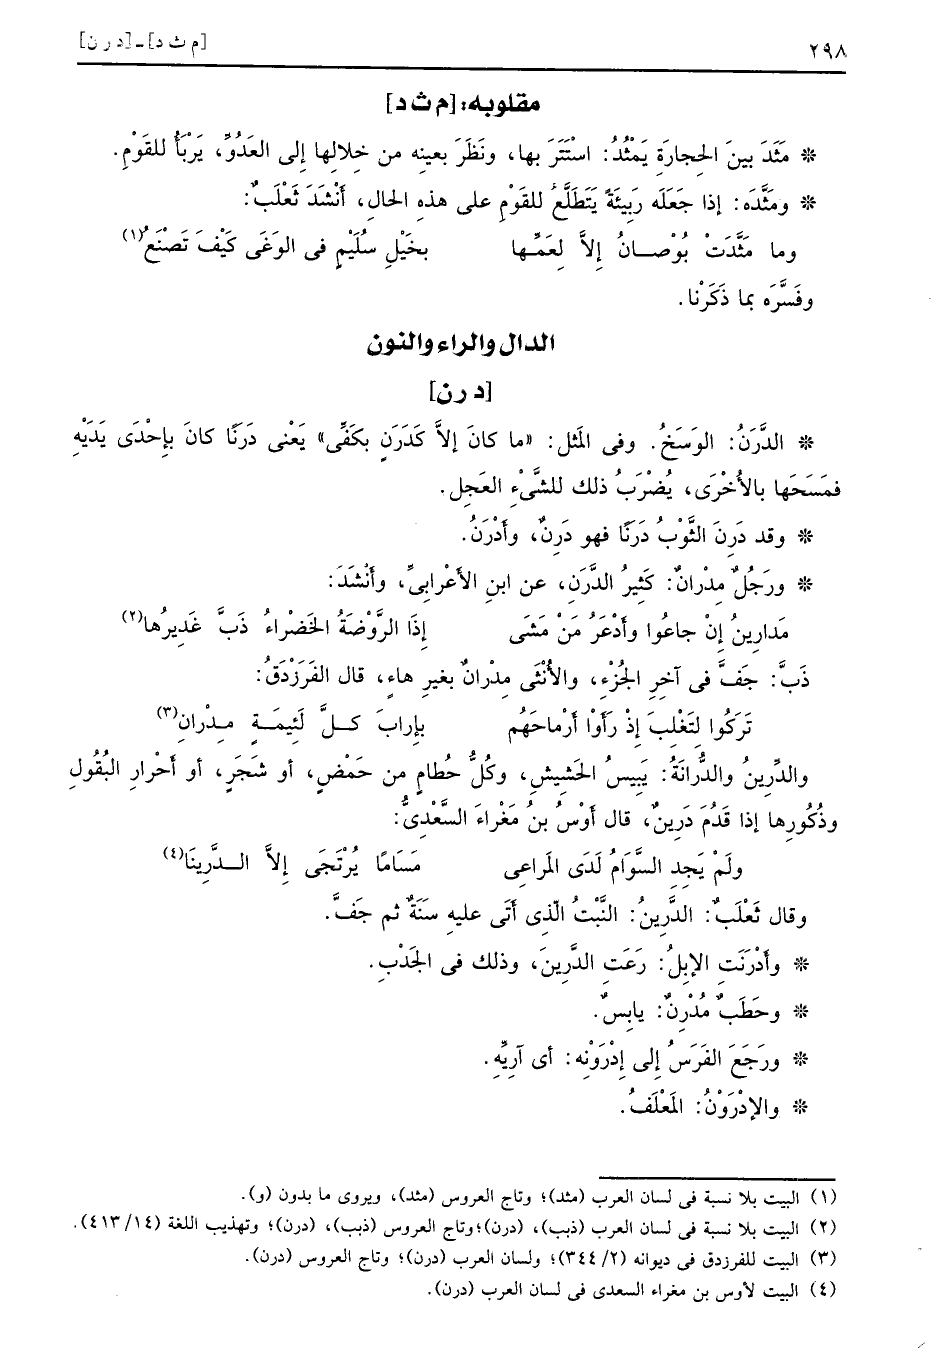 ٢٩٨ [م ث د] ـ [د ر ن]
مقلوبه: [م ث د]
* مَثَدَ بينَ الحِجارَةِ يَمْثُدُ: اسْتَتَرَ بها، ونَظَرَ بعينِه من خِلالِها إلى العَدُوِّ، يَرْبَأُ للقَوْمِ.
* ومَثَّدَه: إذا جَعَلَه رَبِيئَةً يَتَطَلَّعُ للقَوْمِ على هذه الحالِ، أَنْشَدَ ثَعْلَبٌ:
وما مَثَّدَتْ بُوْصــانُ إلاَّ لعَمِّـها بخَيْلِ سُلَيْمٍ فى الوَغَى كَيْفَ تَصْنَعُ(١)
وفَسَّرَه بما ذَكَرْنا.
الدال والراء والنون
[د ر ن]
* الدَّرَنُ: الوَسَخُ. وفى المَثَل: «ما كانَ إلاَّ كَدَرَنٍ بكَفِّى» يَعْنى دَرَنًا كانَ بإِحْدَى يَدَيْهِ
فمَسَحَها بالأُخْرَى، يُضْرَبُ ذلك للشَّىْءِ العَجِلِ.
* وقد دَرِنَ الثَّوْبُ دَرَنًا فهو دَرِنٌ، وأَدْرَنُ.
* ورَجُلٌ مِدْرانٌ: كَثِيرُ الدَّرَنِ، عن ابنِ الأَعْرابىِّ، وأَنْشَدَ:
مَدارِينُ إنْ جاعُوا وأَدْعَرُ مَنْ مَشَى إذَا الرَّوْضَةُ الخَضْراءُ ذَبَّ غَدِيرُها(٢)
ذَبَّ: جَفَّ فى آخرِ الجُزْءِ، والأُنْثَى مِدْرانٌ بغيرِ هاءٍ، قال الفَرَزْدَقُ:
تَرَكُوا لتَغْلِبَ إذْ رَأَوْا أرْماحَهُم بإِرابَ كــلَّ لَئِيمَــةٍ مِـدْرانِ(٣)
والدَّرِينُ والدُّرانَةُ: يَبِيسُ الحَشِيشِ، وكُلُّ حُطامٍ من حَمْضٍ، أو شَجَرٍ، أو أَحْرارِ البُقُولِ
وذُكُورِها إذا قَدُمَ دَرِينٌ، قال أَوْسُ بنُ مَغْراءَ السَّعْدِىُّ:
ولَمْ يَجِدِ السَّوَامُ لَدَى المَراعِى مَسَامًا يُرْتَجَى إلاَّ الــدَّرِينَا(٤)
وقال ثَعْلَبٌ: الدَّرِينُ: النَّبْتُ الَّذِى أَتَى عليهِ سَنَةٌ ثم جَفَّ.
* وأَدْرَنَتِ الإبلُ: رَعَتِ الدَّرِينَ، وذلك فى الجَدْبِ.
* وحَطَبٌ مُدْرِنٌ: يابِسٌ.
* ورَجَعَ الفَرَسُ إلى إِدْرَوْنِه: أى آرِيِّهِ.
* والإدْرَوْنُ: المَعْلَفُ.
(١) البيت بلا نسبة فى لسان العرب (مثد)؛ وتاج العروس (مثد)، ويروى ما بدون (و).
(٢) البيت بلا نسبة فى لسان العرب (ذبب)، (درن)؛ وتاج العروس (ذبب)، (درن)؛ وتهذيب اللغة (١٤/ ٤١٣).
(٣) البيت للفرزدق فى ديوانه (٢/ ٣٤٤)؛ ولسان العرب (درن)؛ وتاج العروس (درن).
(٤) البيت لأوس بن مغراء السعدى فى لسان العرب (درن).